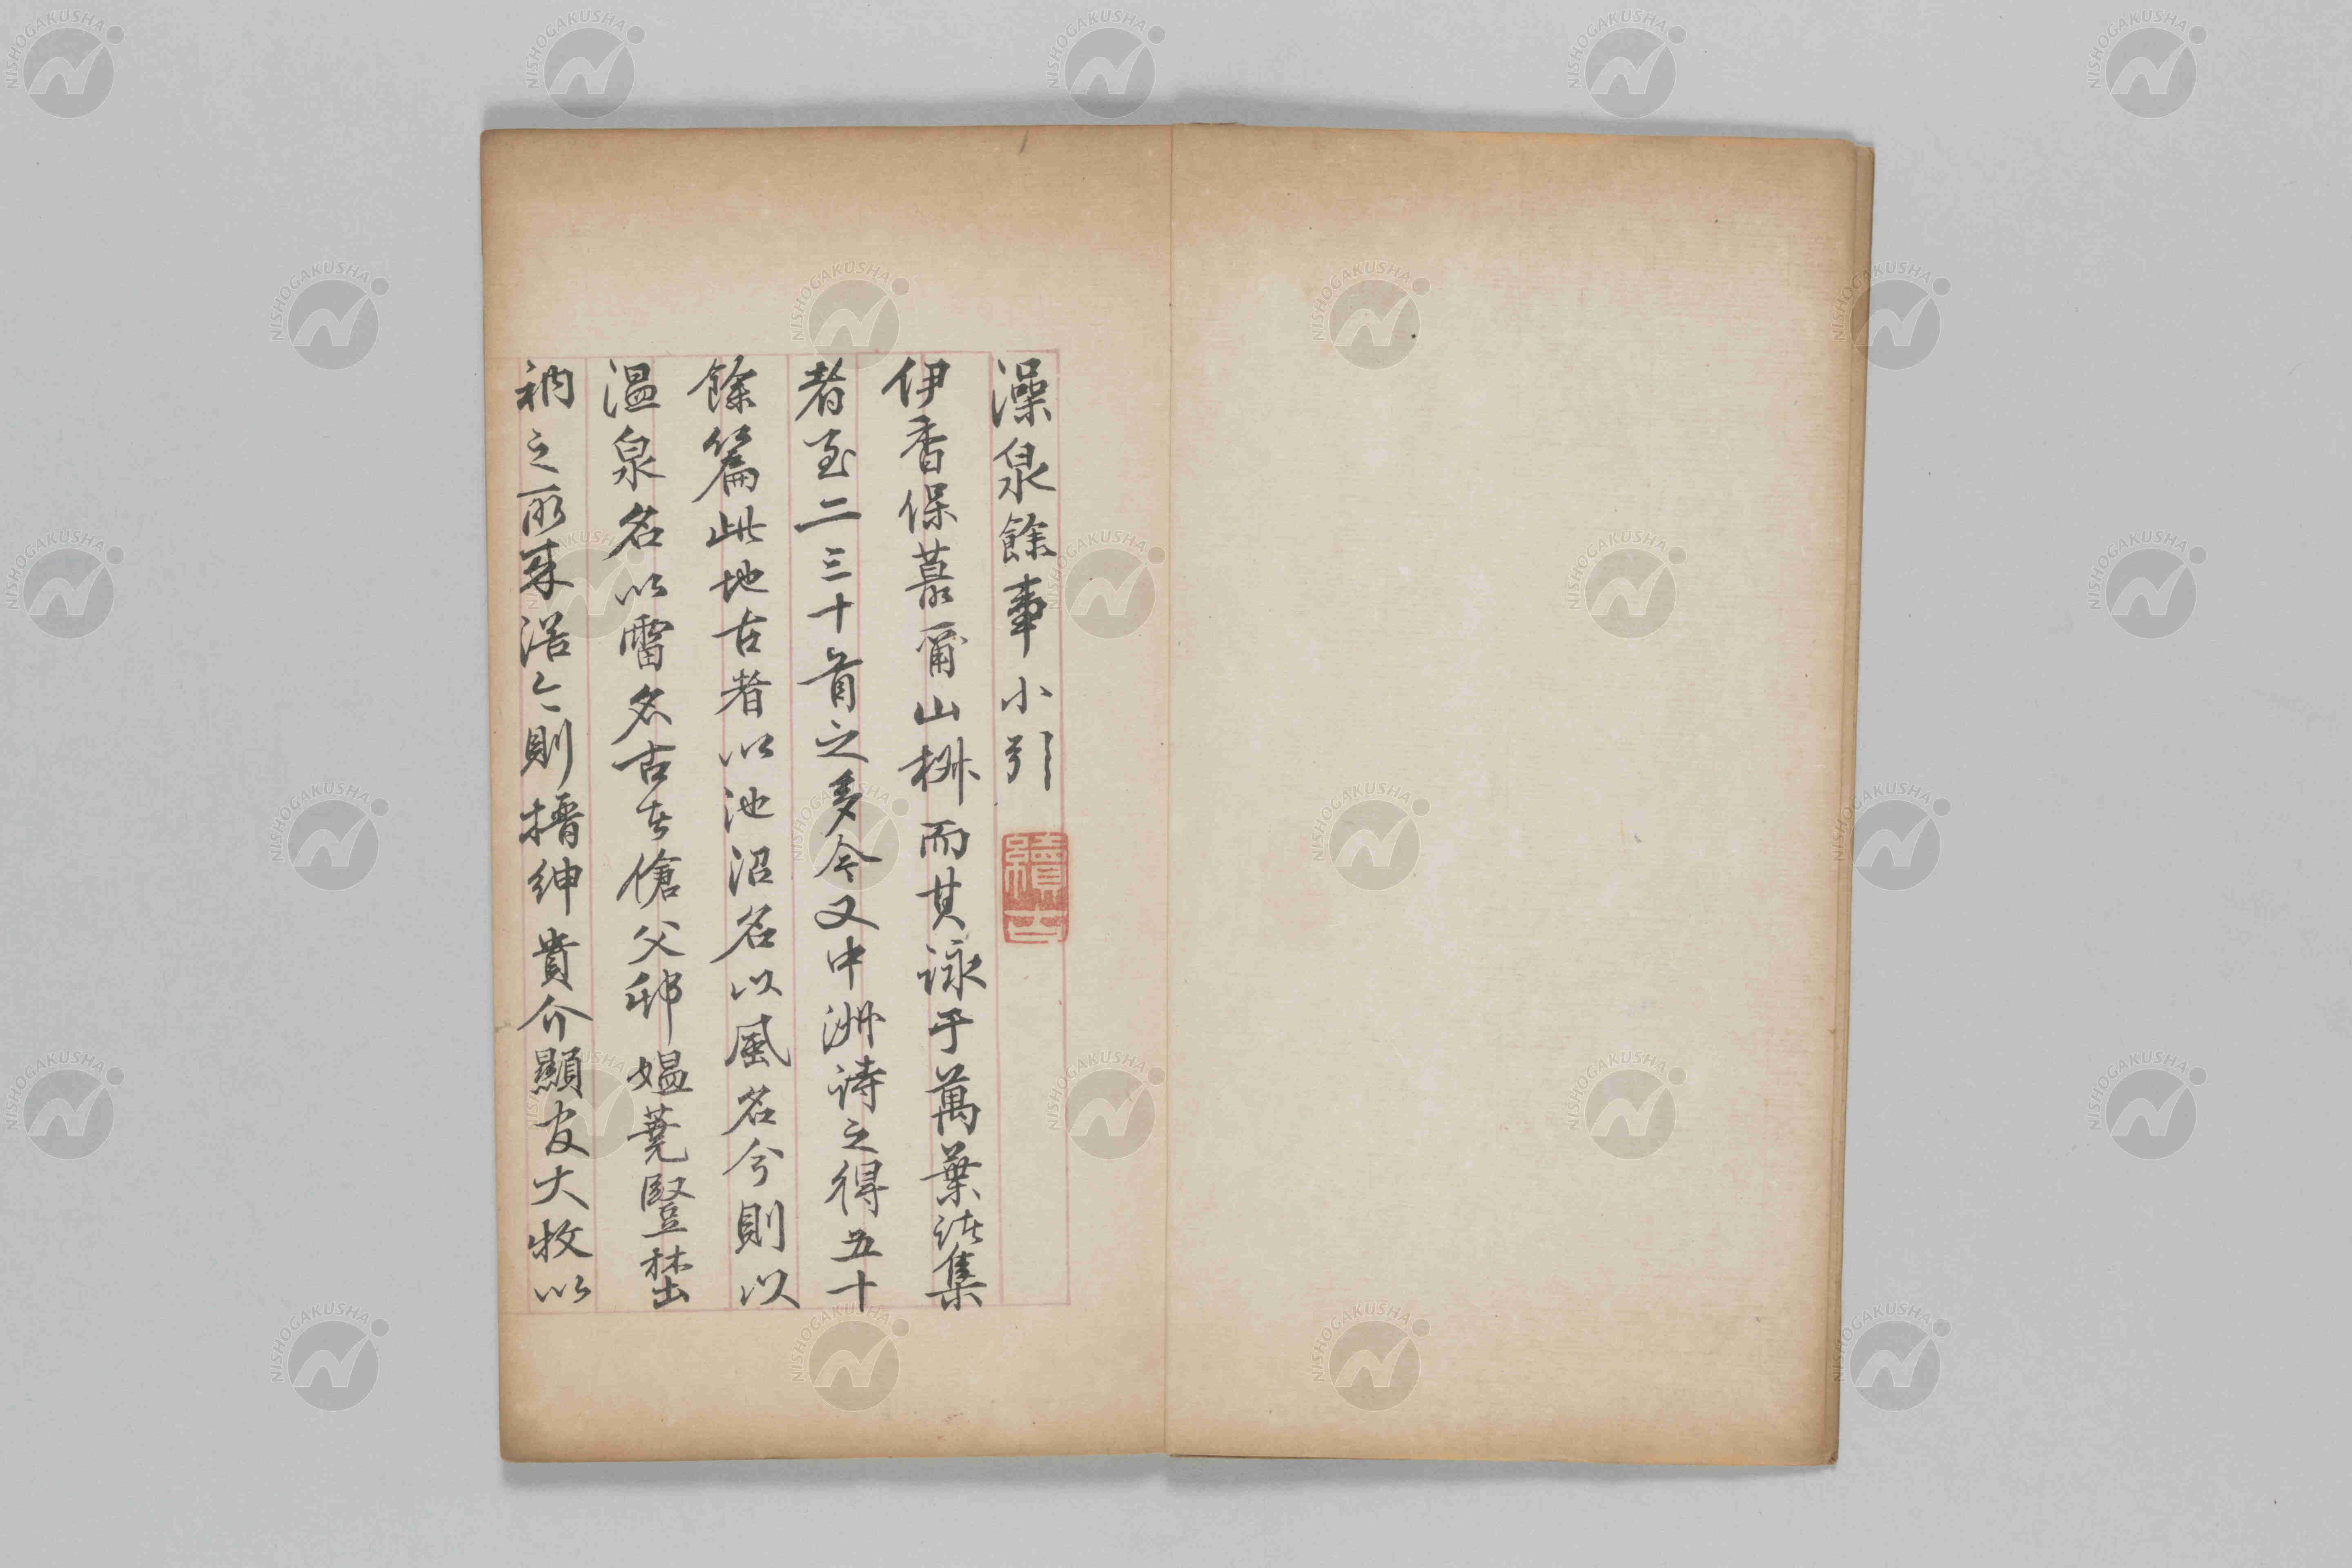 澡泉餘事小引
續古
伊香保蕞爾山椕而其詠于萬葉諸集
者至二三十首之多今又中洲詩之得五十
餘篇此地古者以池沼名以風名今則以
温泉名以雷名古在傖父邨媼蕘豎埜
衲之所来浴今則搢紳貴介顯官大牧以
NISHOGAKUSHA